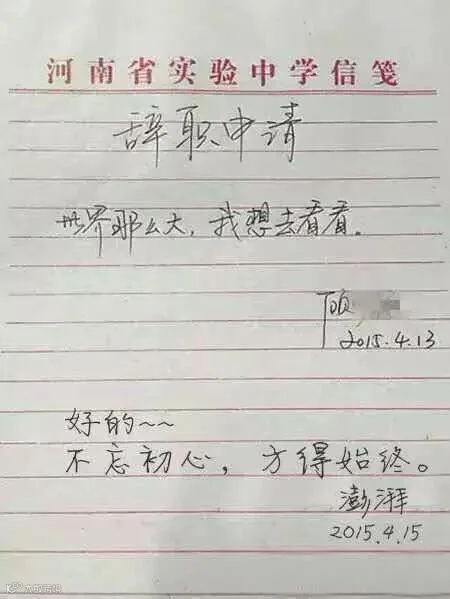 河南省实验中学信笺
辞职申请
世界那么大，我想去看看。
顾
2015.4.13
好的~~
不忘初心，方得始终。
澎湃
2015.4.15